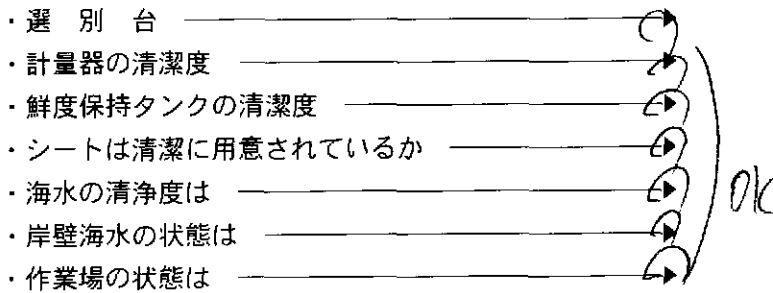 ・選 別 台
・計量器の清潔度
・鮮度保持タンクの清潔度
・シートは清潔に用意されているか
・海水の清浄度は
・岸壁海水の状態は
・作業場の状態は
OK